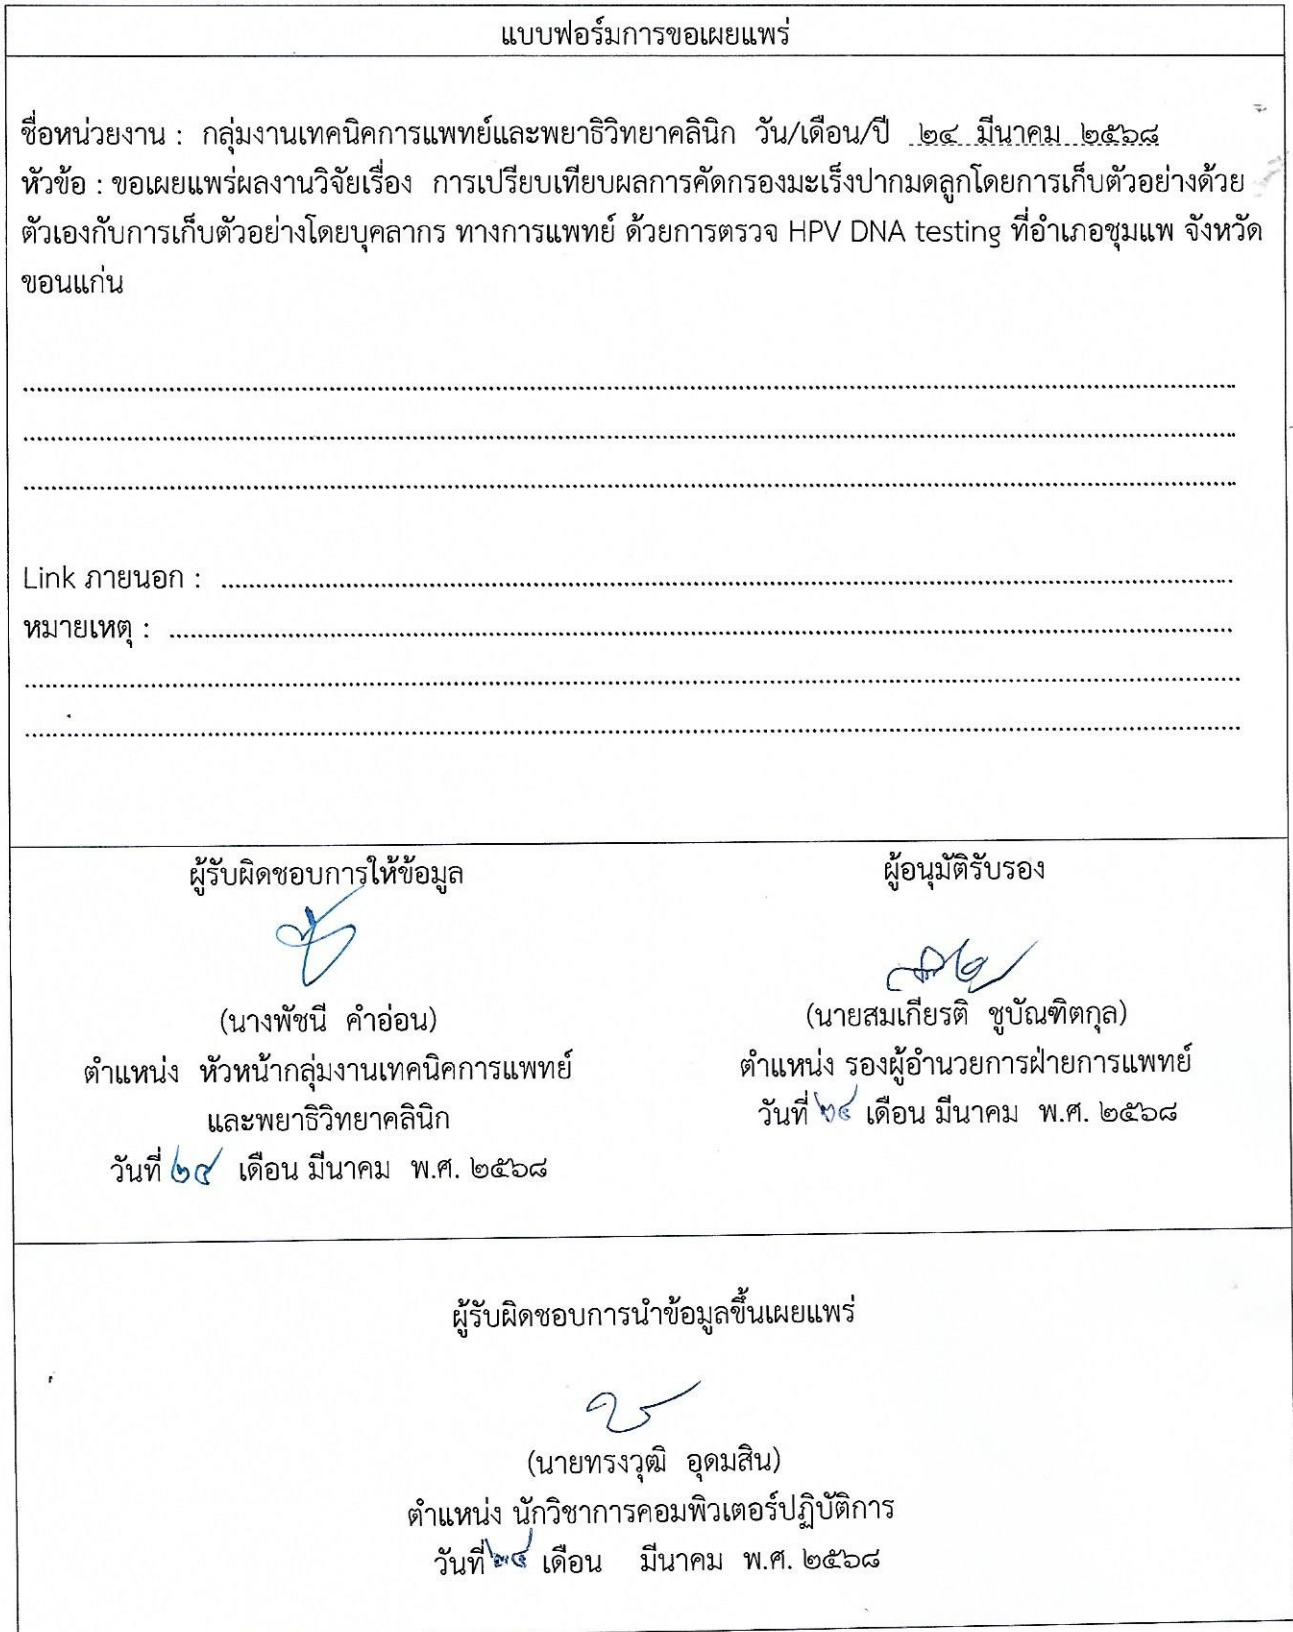 แบบฟอร์มการขอเผยแพร่
ชื่อหน่วยงาน : กลุ่มงานเทคนิคการแพทย์และพยาธิวิทยาคลินิก วัน/เดือน/ปี ๒๔ มีนาคม ๒๕๖๘
หัวข้อ : ขอเผยแพร่ผลงานวิจัยเรื่อง การเปรียบเทียบผลการคัดกรองมะเร็งปากมดลูกโดยการเก็บตัวอย่างด้วย
ตัวเองกับการเก็บตัวอย่างโดยบุคลากร ทางการแพทย์ ด้วยการตรวจ HPV DNA testing ที่อำเภอชุมแพ จังหวัด
ขอนแก่น
Link ภายนอก :
หมายเหตุ :
ผู้รับผิดชอบการให้ข้อมูล
(นางพัชนี คำอ่อน)
ตำแหน่ง หัวหน้ากลุ่มงานเทคนิคการแพทย์
และพยาธิวิทยาคลินิก
วันที่ ๒๔ เดือน มีนาคม พ.ศ. ๒๕๖๘
ผู้อนุมัติรับรอง
(นายสมเกียรติ ชูบัณฑิตกุล)
ตำแหน่ง รองผู้อำนวยการฝ่ายการแพทย์
วันที่ ๒๔ เดือน มีนาคม พ.ศ. ๒๕๖๘
ผู้รับผิดชอบการนำข้อมูลขึ้นเผยแพร่
(นายทรงวุฒิ อุดมสิน)
ตำแหน่ง นักวิชาการคอมพิวเตอร์ปฏิบัติการ
วันที่ ๒๔ เดือน มีนาคม พ.ศ. ๒๕๖๘